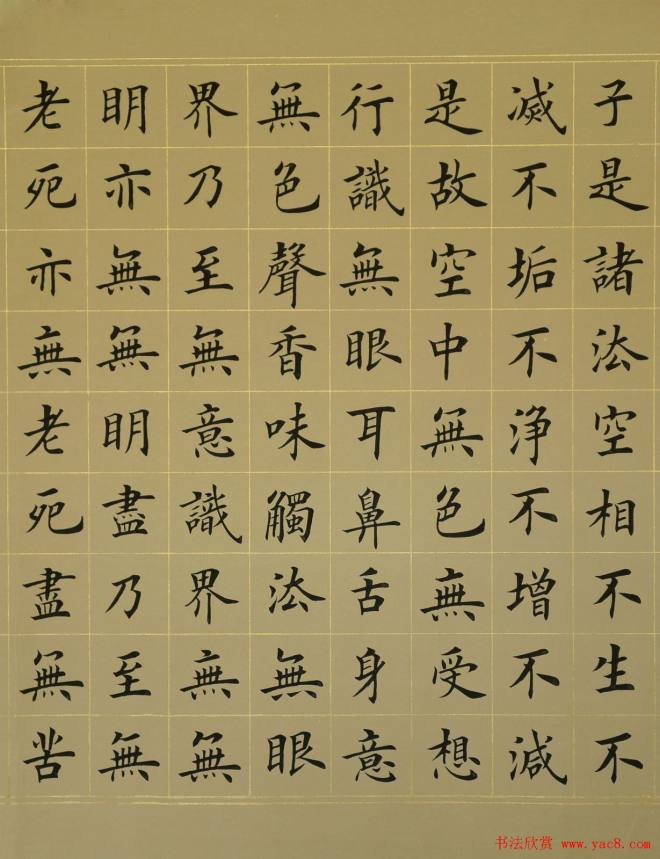 子是諸法空相不生不
滅不垢不淨不增不減
是故空中無色無受想
行識無眼耳鼻舌身意
無色聲香味觸法無眼
界乃至無意識界無無
明亦無無明盡乃至無
老死亦無老死盡無苦
书法欣赏 www.yac8.com